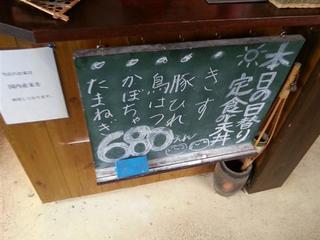 本日の日替り
定食の天丼
きす
豚ひれ
鳥はつ
かぼちゃ
たまねぎ
680えん
国内産米を
使用しております。